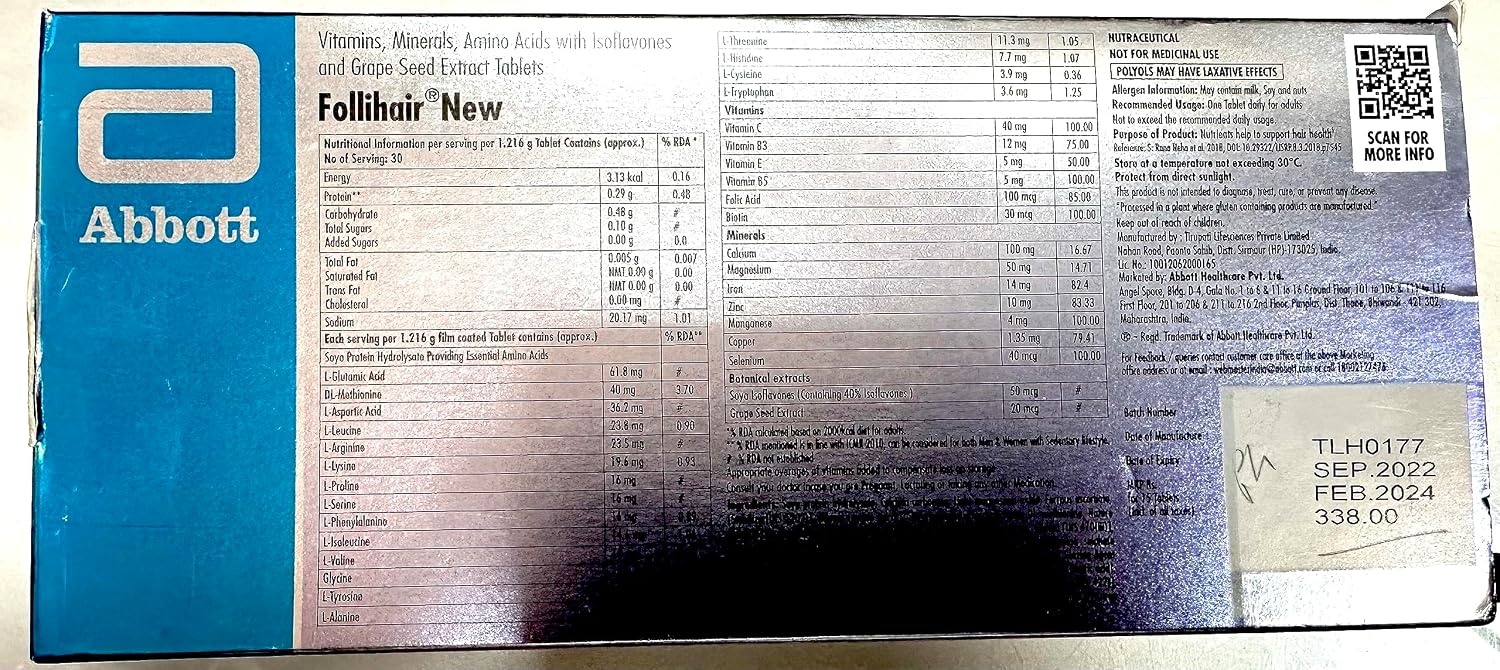 Abbott
Vitamins, Minerals, Amino Acids with Isoflavones
and Grape Seed Extract Tablets
Follihair® New
Nutritional Information per serving per 1.216 g Tablet Contains (approx.) % RDA *
No of Serving: 30
Energy 3.13 kcal 0.16
Protein** 0.29 g 0.48
Carbohydrate 0.48 g #
Total Sugars 0.10 g #
Added Sugars 0.00 g 0.0
Total Fat 0.005 g 0.007
Saturated Fat NMT 0.00 g 0.00
Trans Fat NMT 0.00 g 0.00
Cholesterol 0.00 mg #
Sodium 20.17 mg 1.01
Each serving per 1.216 g film coated Tablet contains (approx.) % RDA**
Soya Protein Hydrolysate Providing Essential Amino Acids
L-Glutamic Acid 61.8 mg #
DL-Methionine 40 mg 3.70
L-Aspartic Acid 36.2 mg #
L-Leucine 23.8 mg 0.90
L-Arginine 23.5 mg #
L-Lysine 19.6 mg 0.93
L-Proline 16 mg #
L-Serine 16 mg #
L-Phenylalanine
L-Isoleucine
L-Valine
Glycine
L-Tyrosine
L-Alanine
L-Threonine 11.3 mg 1.05
L-Histidine 7.7 mg 1.07
L-Cysteine 3.9 mg 0.36
L-Tryptophan 3.6 mg 1.25
Vitamins
Vitamin C 40 mg 100.00
Vitamin B3 12 mg 75.00
Vitamin E 5 mg 50.00
Vitamin B5 5 mg 100.00
Folic Acid 100 mcg 85.00
Biotin 30 mcg 100.00
Minerals
Calcium 100 mg 16.67
Magnesium 50 mg 14.71
Iron 14 mg 82.4
Zinc 10 mg 83.33
Manganese 4 mg 100.00
Copper 1.35 mg 79.41
Selenium 40 mcg 100.00
Botanical extracts
Soya Isoflavones (Containing 40% Isoflavones ) 50 mcg #
Grape Seed Extract 20 mcg #
*% RDA calculated based on 2000kcal diet for adults.
**% RDA mentioned is in line with ICMR 2010, can be considered for both Men & Women with Sedentary lifestyle.
# % RDA not established
Appropriate overages of vitamins added to compensate loss on storage
Consult your doctor incase you are Pregnant, Lactating or taking any other Medication.
NUTRACEUTICAL
NOT FOR MEDICINAL USE
POLYOLS MAY HAVE LAXATIVE EFFECTS
Allergen Information: May contain milk, Soy and nuts
Recommended Usage: One Tablet daily for adults
Not to exceed the recommended daily usage.
Purpose of Product: Nutrients help to support hair health
Reference: S. Rana Neha et al. 2018,
Store at a temperature not exceeding 30°C.
Protect from direct sunlight.
This product is not intended to diagnose, treat, cure, or prevent any disease.
"Processed in a plant where gluten containing products are manufactured."
Keep out of reach of children.
Manufactured by : Tirupati Lifesciences Private Limited
Nahan Road, Paonta Sahib, Distt. Sirmour (HP)-173025, India.
Lic. No.: 10012062000165
Marketed by: Abbott Healthcare Pvt. Ltd.
Angel Space, Bldg. D-4, Gala No. 1 to 6 & 11 to 16 Ground Floor, 101 to 106 & 111 to 116
First Floor, 201 to 206 & 211 to 216 2nd Floor, Pimplas, Dist. Thane, Bhiwandi - 421 302,
Maharashtra, India.
® - Regd. Trademark of Abbott Healthcare Pvt. Ltd.
For Feedback / queries contact customer care office at the above Marketing
office address or at email : webmasterindia@abbott.com or call
SCAN FOR
MORE INFO
Batch Number TLH0177
Date of Manufacture SEP.2022
Date of Expiry FEB.2024
M.R.P Rs. 338.00
for 15 Tablets
(Incl. of all taxes)